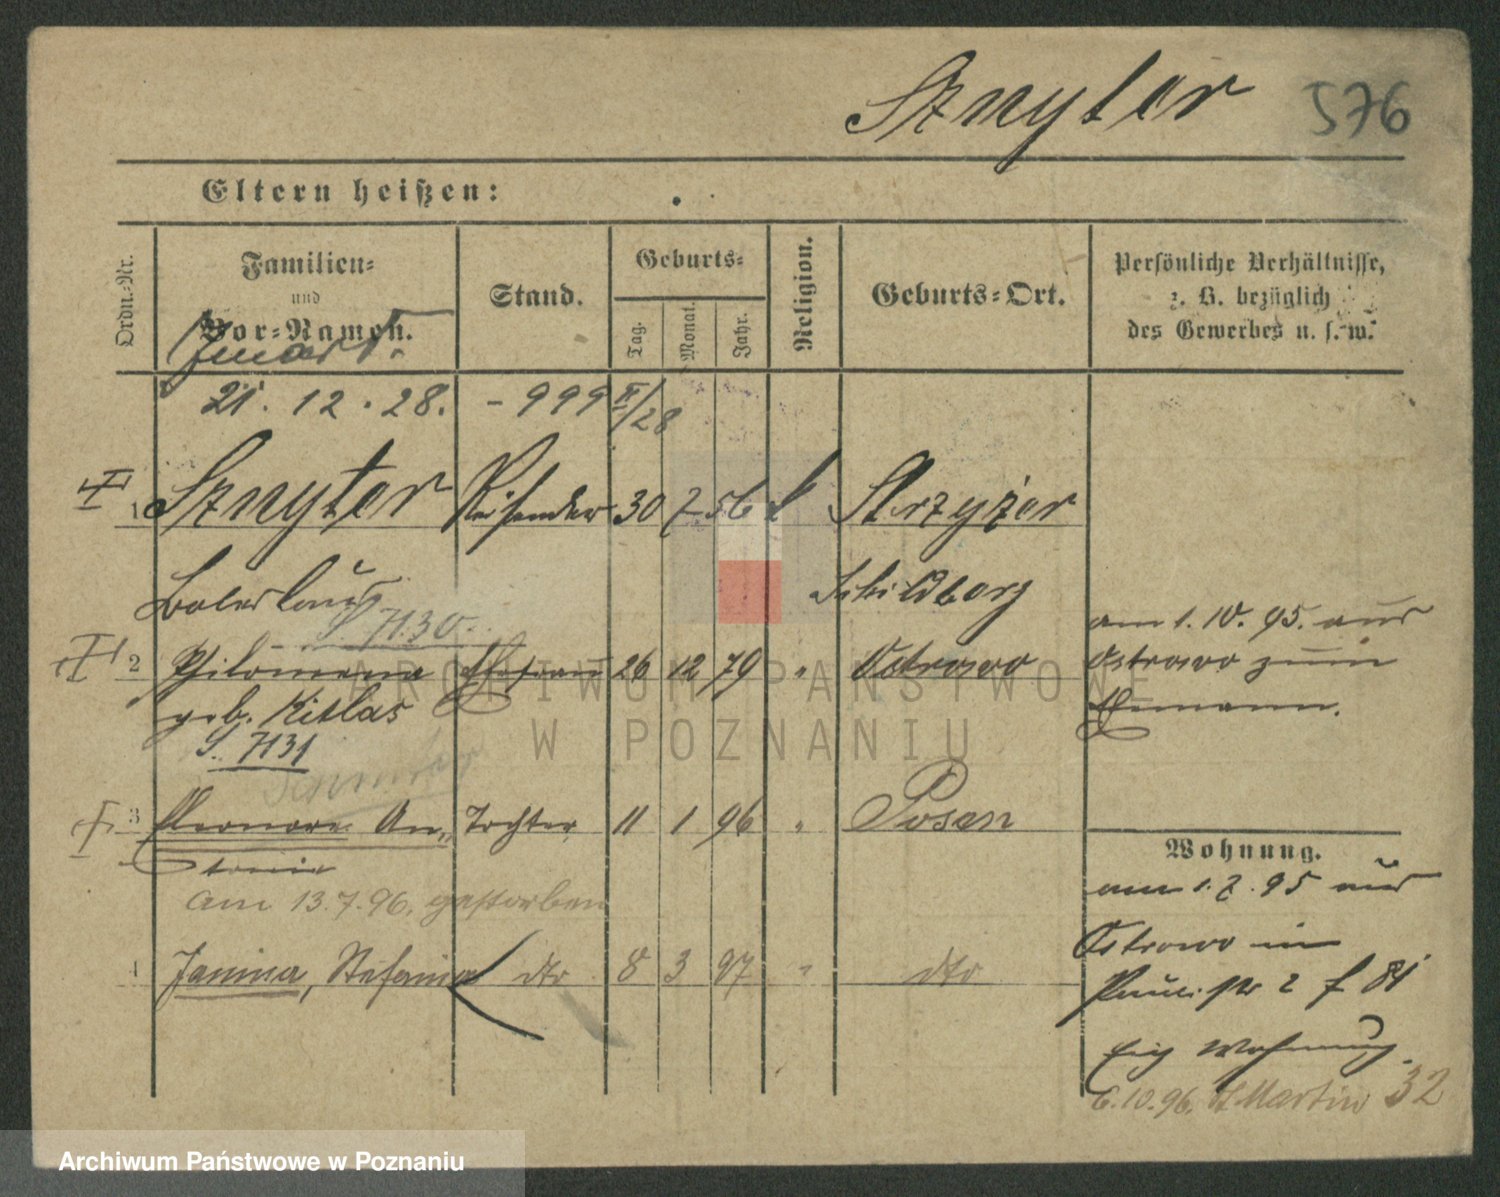 Sznyter 576
Eltern heißen:
Ordn.-Nr. Familien- und Vor-Namen. Stand. Geburts- Tag. Monat. Jahr. Religion. Geburts-Ort. Persönliche Verhältnisse, z. B. bezüglich des Gewerbes u. s. w.
Zmarł.
21. 12. 28. - 999 II/28
1 Sznyter Reisender 30 7 56 k Strzyżew
Boleslaus Schildberg
S. 7130. am 1. 10. 95. aus
2 Philomena Ehefrau 26 12 79 " Ostrowo Ostrowo zum
geb. Kitlas Ehemann.
S. 7131
3 Eleonore An- Tochter 11 1 96 " Posen
tonie
Wohnung.
am 13.7.96. gestorben am 1. 7. 95 aus
Ostrowo in
4 Janina, Stefania dto 8 3 97 " dto
Paulistr 2
Eig Wohnung.
6.10.96. St Martin 32
ARCHIWUM PAŃSTWOWE
W POZNANIU
Archiwum Państwowe w Poznaniu